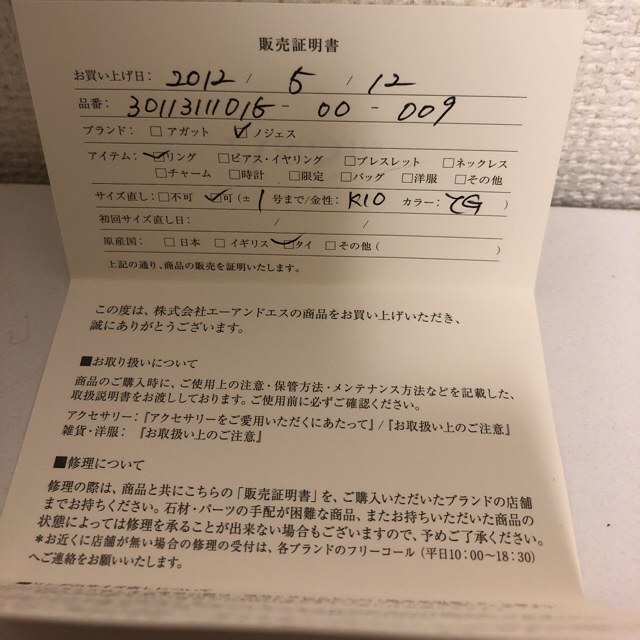 販売証明書
お買い上げ日： 2012 / 5 / 12
品番： 30113111015 - 00 - 009
ブランド： □ アガット ☑ ノジェス
アイテム： ☑リング □ピアス・イヤリング □ブレスレット □ネックレス
□チャーム □時計 □限定 □バッグ □洋服 □その他
サイズ直し： □不可 ☑可（± 1 号まで/金性： K10 カラー： ）
初回サイズ直し日： / /
原産国： □日本 □イギリス ☑タイ □その他（ ）
上記の通り、商品の販売を証明いたします。
この度は、株式会社エーアンドエスの商品をお買い上げいただき、
誠にありがとうございます。
■お取り扱いについて
商品のご購入時に、ご使用上の注意・保管方法・メンテナンス方法などを記載した、
取扱説明書をお渡ししております。ご使用前に必ずご確認ください。
アクセサリー：『アクセサリーをご愛用いただくにあたって』/『お取扱い上のご注意』
雑貨・洋服： 『お取扱い上のご注意』
■修理について
修理の際は、商品と共にこちらの「販売証明書」を、ご購入いただいたブランドの店舗
までお持ちください。石材・パーツの手配が困難な商品、またお持ちいただいた商品の
状態によっては修理を承ることが出来ない場合もございますので、予めご了承ください。
＊お近くに店舗が無い場合の修理の受付は、各ブランドのフリーコール（平日10：00〜18：30）
へご連絡をお願いいたします。